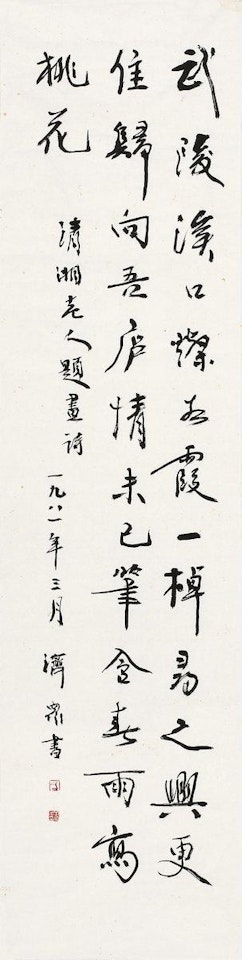 武陵溪口燦如霞一棹尋之興更
佳歸向吾庐情未已筆含春雨寫
桃花
清湘老人題畫詩 一九八一年三月 濟衆書